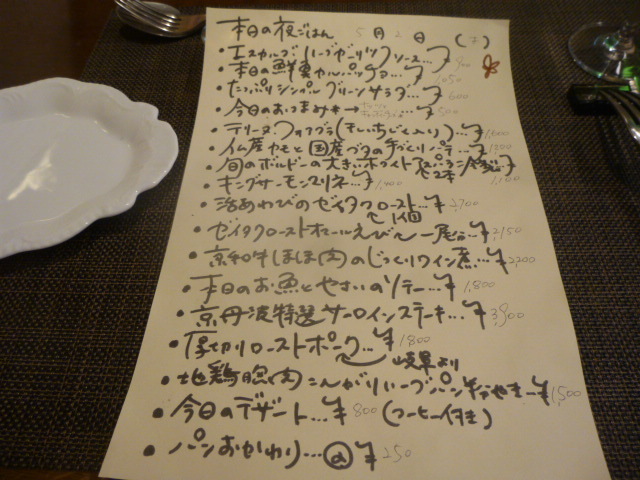 本日の夜ごはん 5月2日
・エスカルゴ(ハーブガーリックソース…¥900
・本日の鮮魚カルパッチョ…¥1,050
・たっぷりシンプルグリーンサラダ…¥600
・今日のおつまみ*→ ¥500
・テリーヌ・フォアグラ(干しいちじく入り)…¥1,600
・仏産カモと国産ブタの手づくりパテ…¥1,200
・旬のボルドーの大きいホワイトアスパラ 2本 ¥1,100
・キングサーモンマリネ…¥1,400
・活あわびのゼイタクロースト…¥2,700
↑1個
・ゼイタクローストオマールえび〜一尾…¥2,150
・京和牛ほほ肉のじっくりワイン煮…¥2,200
・本日のお魚とやさいのソテー…¥1,800
・京丹波特選サーロインステーキ…¥3,900
・厚切りローストポーク…¥1,800
岐阜より
・地鶏腿肉こんがりハーブパン粉やき…¥1,500
・今日のデザート…¥800 (コーヒー付き)
・パンおかわり…@¥250